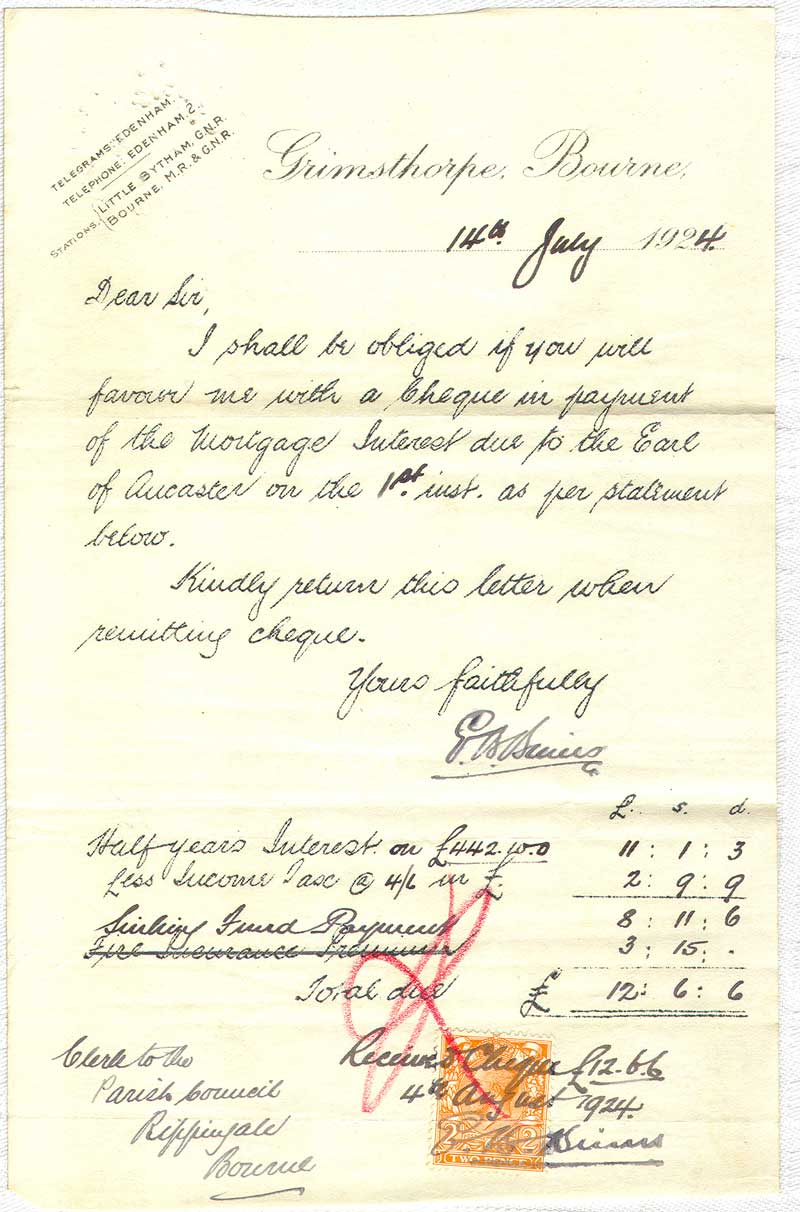 TELEGRAMS: EDENHAM.
TELEPHONE: EDENHAM 2.
STATIONS. LITTLE BYTHAM, G.N.R.
BOURNE, M.R. & G.N.R.
Grimsthorpe, Bourne,
14th July 1924.
Dear Sir,
I shall be obliged if you will
favour me with a Cheque in payment
of the Mortgage Interest due to the Earl
of Ancaster on the 1st. inst. as per statement
below.
Kindly return this letter when
remitting cheque.
Yours faithfully
£. s. d.
Half years Interest on £442.10.0 11 : 1 : 3
Less Income Tax @ 4/6 in £. 2 : 9 : 9
Sinking Fund Payment 8 : 11 : 6
Fire Insurance Premium 3 : 15 : .
Total due £ 12 : 6 : 6
Clerk to the
Parish Council
Rippingale
Bourne
Received Cheque £12.6.6
4th August 1924.
2D 2D
TWO PENCE